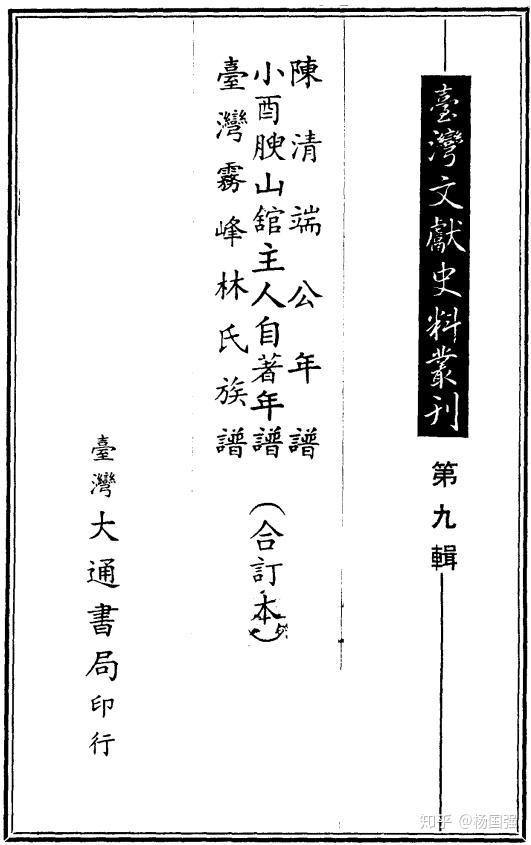 臺灣文獻史料叢刊 第九輯
陳清端公年譜
小酉腴山館主人自著年譜
臺灣霧峰林氏族譜
（合訂本）
臺灣大通書局印行
知乎 @杨国强